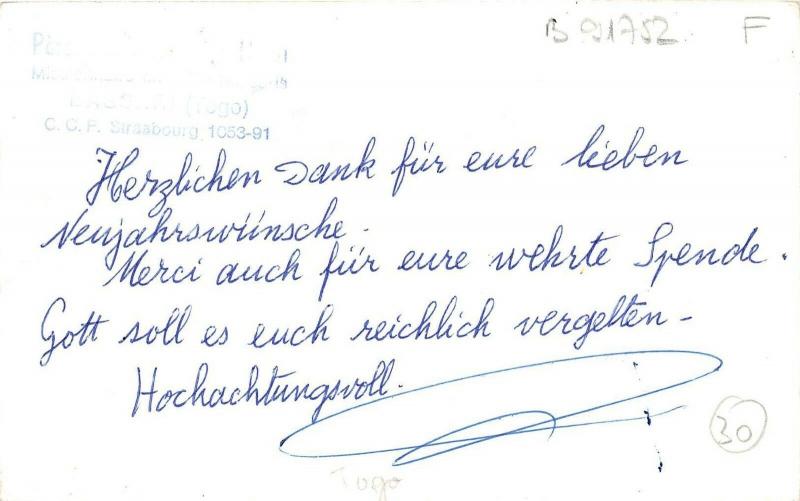 B 91752 F
(Togo)
C. C. P. Strasbourg 1053-91
Herzlichen Dank für eure lieben
Neujahrswünsche.
Merci auch für eure wehrte Spende.
Gott soll es euch reichlich vergelten -
Hochachtungsvoll.
30
Togo